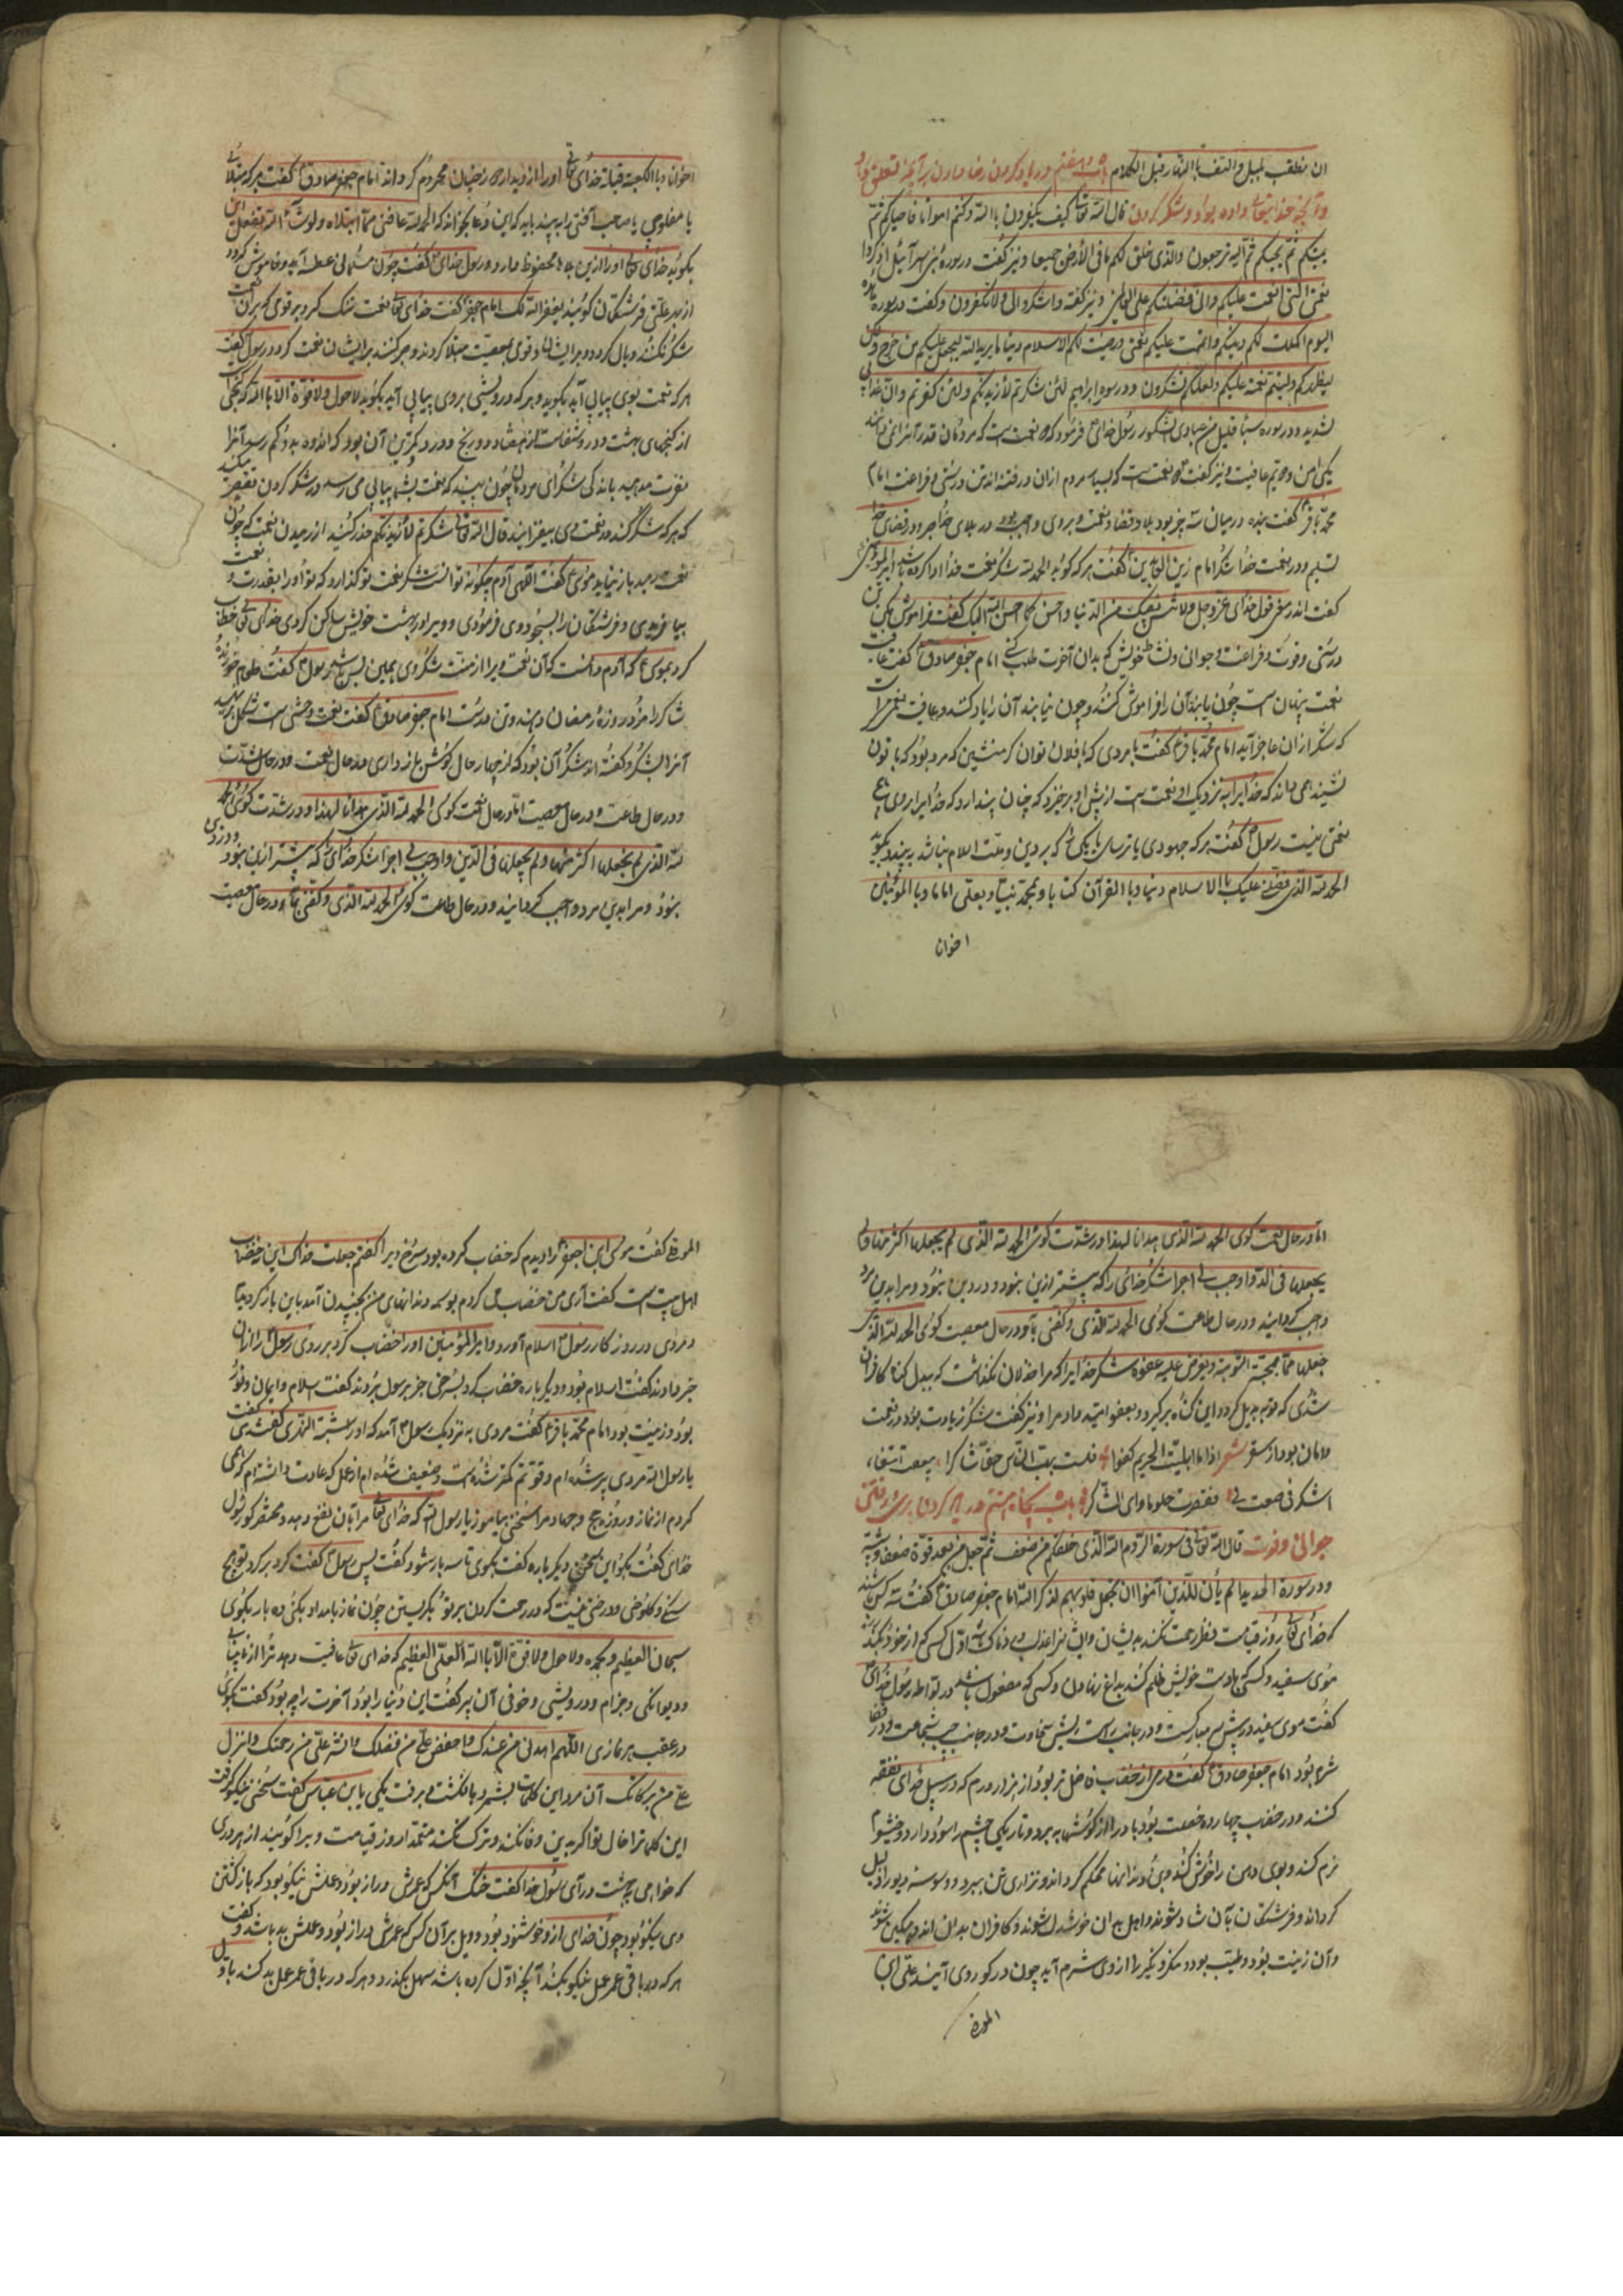 ان ینقلب لیل و التف باالنهار قبل الکلام باب پنجاه و هفتم در یاد کردن رضا دادن بر آنچه تعلق دارد
و آنچه خدایتعالی داده بود و شکر کردن قال الله تعالی کیف تکفرون باالله و کنتم امواتا فاحیاکم ثم
یمیتکم ثم یحییکم ثم الیه ترجعون والذی خلق لکم ما فی الأرض جمیعا و نیز گفت در سوره بنی اسرآئیل اذکروا
نعمتی التی انعمت علیکم و انی فضلتکم علی العالمین و نیز گفته واشکروا لی ولا تکفرون و گفت در سوره مائده
الیوم اکملت لکم دینکم و اتممت علیکم نعمتی و رضیت لکم الاسلام دینا ما یرید الله لیجعل علیکم من حرج ولکن
لیطهرکم ولیتم نعمته علیکم ولعلکم تشکرون و در سوره ابراهیم لئن شکرتم لأزیدنکم ولئن کفرتم و ان عذابی
لشدید و در سوره سبأ قلیل من عبادی الشکور رسول خدای فرمود که دو نعمت است که مردمان قدر آنرا نمی دانند
یکی امن و دویم عافیت و نیز گفت دو نعمت است که بسیار مردم ازان در فتنه اند تن درستی و فراغت امام
محمد باقر گفت بنده در میان سه چیز بود بلا و قضا و نعمت و بر وی واجب بود در بلای خدا صبر و در قضای خدا
تسلیم و در نعمت خدا شکر امام زین العابدین گفت هر که گوید الحمد لله شکر نعمت خدا ادا کرده باشد امیر المؤمنین
گفت اندر معنی قول خدای عزوجل ولا تنس نصیبک من الدنیا واحسن کما احسن الله الیک گفت فراموش مکن تن
درستی و قوت و فراغت و جوانی و نشاط خویش که بدان آخرت طلب کنی امام جعفر صادق گفت عافیت
نعمت پنهان است چون یابند آن را فراموش کنند و چون نیابند آن را یاد کنند و عافیت نعمتی است
که شکر از ان عاجز آید امام محمد باقر گفت با مردی که با فلان توان کر منشین که مرد بود که با تو
نشیند همی داند که خدا برا بنزدیک او نعمت است از پیش او برخیزد که چنان پندارد که خدا برا بر وی هیچ
نعمتی نیست رسول گفت هر که جهودی یا ترسای یا یکی که بر دین و ملت اسلام نباشد ببیند بگوید
الحمد لله الذی فضلنی علیک باالاسلام دینا و باالقرآن کتابا و بمحمد نبیا و بعلی اماما و باالمؤمنین
اخوان
اخوانا و باالکعبة قبلة خدای تعالی او را از دیدار دوزخیان محروم گرداند امام جعفر صادق گفت هر که مبتلائی
یا مفلوجی یا صاحب آفتی را ببیند باید که این دعا بخواند که الحمد لله عافنی مما ابتلاه و لو شآء الله لفعل این
بگوید خدای تعالی او را ازین بلا محفوظ دارد و رسول خدای گفت چون مسلمانی عطسه آید و خاموش گردد
از بهر علتی فرشتگان گویند یغفر الله لک امام جعفر گفت خدای تعالی نعمت کرد بر قومی که بران
شکر نکنند وبال گردد و بر ایشان و قومی بمعصیت مبتلا گردند و صبر کنند بر ایشان نعمت گردد رسول گفت
هر که نعمت بوی پیاپی آید بگوید و هر که درویشی بروی پیاپی آید بگوید لا حول ولا قوة الا باالله که گنجی
از گنجهای بهشت و در و شفاست از هفتاد و دو رنج و درد کمترین آن بود که اندوه بدو کم رسد آنرا
نفرت مدهید باندکی شکرای مردمان چون ببینید که نعمت بشما پیاپی می رسد در شکر کردن تقصیر مکنید
که هر که شکر کند در نعمت وی بیفزایند قال الله تعالی لئن شکرتم لأزیدنکم حذر کنید از رمیدن نعمت که چون
نعمت برمید باز نیاید موسی گفت الهی آدم چگونه توانست شکر نعمت تو گذارد که تو او را بقدرت
بیافریدی و فرشتگان را بسجود وی فرمودی و ویرا در بهشت خویش ساکن کردی خدای تعالی خطاب
کرد بموسی که آدم دانست که آن نعمت ویرا از منست شکر وی بهمین بس باشد رسول گفت طعام خورنده
شاکر را مزد روزه رمضان دهند و تن درست امام جعفر صادق گفت نعمت وحشی است بشکل بند
آنرا بشکر و گفته اند شکر آن بود که از چهار حال گوش باز داری در حال نعمت و در حال شدت
و در حال طاعت و در حال معصیت اما در حال نعمت گوی الحمد لله الذی هدانا لهذا و در شدت گوی الحمد
لله الذی لم یجعلها اکثر منها ولم یجعلها فی الدین و اوجب لی اجرا شکر خدای که بیشتر ازین نبود و در دین
نبود و مرا بدین مزد واجب گردانید و در حال طاعت گوی الحمد لله الذی وفقنی بها و در حال معصیت
اما در حال نعمت گوی الحمد لله الذی هدانا لهذا و در شدت گوی الحمد لله الذی لم یجعلها اکثر منها و لم
یجعلها فی الدین و اوجب لی اجرا شکر خدای را که بیشتر ازین نبود و در دین نبود و مرا بدین مزد
واجب گردانید و در حال طاعت گوی الحمد لله الذی وفقنی بها و در حال معصیت گوی الحمد لله الذی
جعلها مما یمحیه التوبة و یعرض علیه عفوه شکر خدا برا که مرا خذلان نگذاشت که ببدل گناه کافران
شدی که توبه بدیل گردد این گناه برگیرد و بعفو امید داد مرا و نیز گفت شکر زیادت بود در نعمت
و امان بود از سقر شعر
اشکر فی صمت باب پنجاه و هشتم در یاد کردن پیری و رفتن
جوانی و قوت قال الله تعالی فی سورة الروم الله الذی خلقکم من ضعف ثم جعل من بعد قوة ضعفا و شیبة
و در سورة الحدید الم یأن للذین آمنوا ان تخشع قلوبهم لذکر الله امام جعفر صادق گفت سه کس باشند
که خدای تعالی روز قیامت نظر رحمت نکند بدیشان و ایشانرا عذاب دردناک باشد اول کسی که از خود بکند
موی سفید و کسی که با دست خویش ظلم کند بدان نهادن و کسی که مفعول باشد در لواطه رسول خدای
گفت موی سفید در پیش سر مبارکست و در جانب راست ریش سخاوت و در جانب چپ شجاعت و در قفا
شوم بود امام جعفر صادق گفت درمی از خضاب فاضل تر بود از هزار درم که در سبیل خدای نفقه
کنند و در خضاب چهارده خصلت بود باد را از گوشها ببرد و تاریکی چشم را سود دارد و خیشوم
نرم کند و بوی دهن را خوش کند و بن دندانها محکم گرداند و نزاری تن ببرد و وسوسه دیو را ذلیل
گرداند و فرشتگان بآن شاد شوند و اهل بدان خوشدل شوند و کافران بدان اندوهگین شوند
و آن زینت بود و طیب بود و منکر و نکیر را از وی شرم آید چون در گور وی آیند علی ابن
المرضی
کفت موسی ابن جعفر را دیدم که خضاب کرده بود سرخ ویرا گفتم جعلت فداک این خضاب
اهل بیت است گفت آری من خضاب می کردم بوسمه دندانهای من بجنبیدن آمد باین باز گردیدم
و مردی در روز گار رسول اسلام آورد و امیر المؤمنین او را خضاب کرد بر روی رسول را زان
خبر دادند گفت اسلام بود و دیگر باره خضاب کرد بسرخی خبر برسول بردند گفت اسلام و ایمان و نور
بود و زینت بود امام محمد باقر گفت مردی به نزدیک رسول آمد که او را شیبة الهذلی گفتندی گفت
یارسول الله مردی پیر شده ام و قوتم کمتر شده است و ضعیف شده ام از عمل که عادت داشته ام که می
کردم از نماز و روزه و حج و جهاد مرا سخنی بیاموز یا رسول الله که خدای تعالی مرا بآن نفع دهد و مختصر گو رسول
خدای گفت بگو این سخن دیگر باره گفت بگوی تا سه بار شنود گفت پس رسول گفت گرد بر گرد تو هیچ
سنگی و کلوخی و درختی نیست که در رحمت کردن بر تو بگریستن چون نماز بامداد بکنی ده بار بگوی
سبحان العظیم و بحمده ولا حول ولا قوة الا باالله العلی العظیم که خدای تعالی عافیت دهد ترا از نابینائی
و دیوانگی و جزام و درویشی و خوفی آن پیر گفت این دنیا را بود آخرت را چه بود گفت بگوی
در عقب هر نمازی اللهم اهدنی من عندک و افض علی من فضلک و انشر علی من رحمتک و انزل
علی من برکاتک آن مرد این کلمات بشمرد با انگشت و برفت یکی با ابن عباس گفت سخنی نیکو گرفت
این کلمات را خال تو اگر بدین وفا کند و ترک نکند متعمدا روز قیامت ویرا گویند از هر دری
که خواهی ببهشت درآی رسول خدا گفت خنک آنکس که عمرش دراز بود و عملش نیکو بود که باز گشتن
وی نیکو بود چون خدای ازو خوشنود بود و ویل بر آن کس که عمرش دراز بود و عملش بد باشد و گفت
هر که در باقی عمر عمل نیکو بکند آنچه اول کرده باشد سهل بگذرد و هر که در باقی عمر عمل بد کند باول